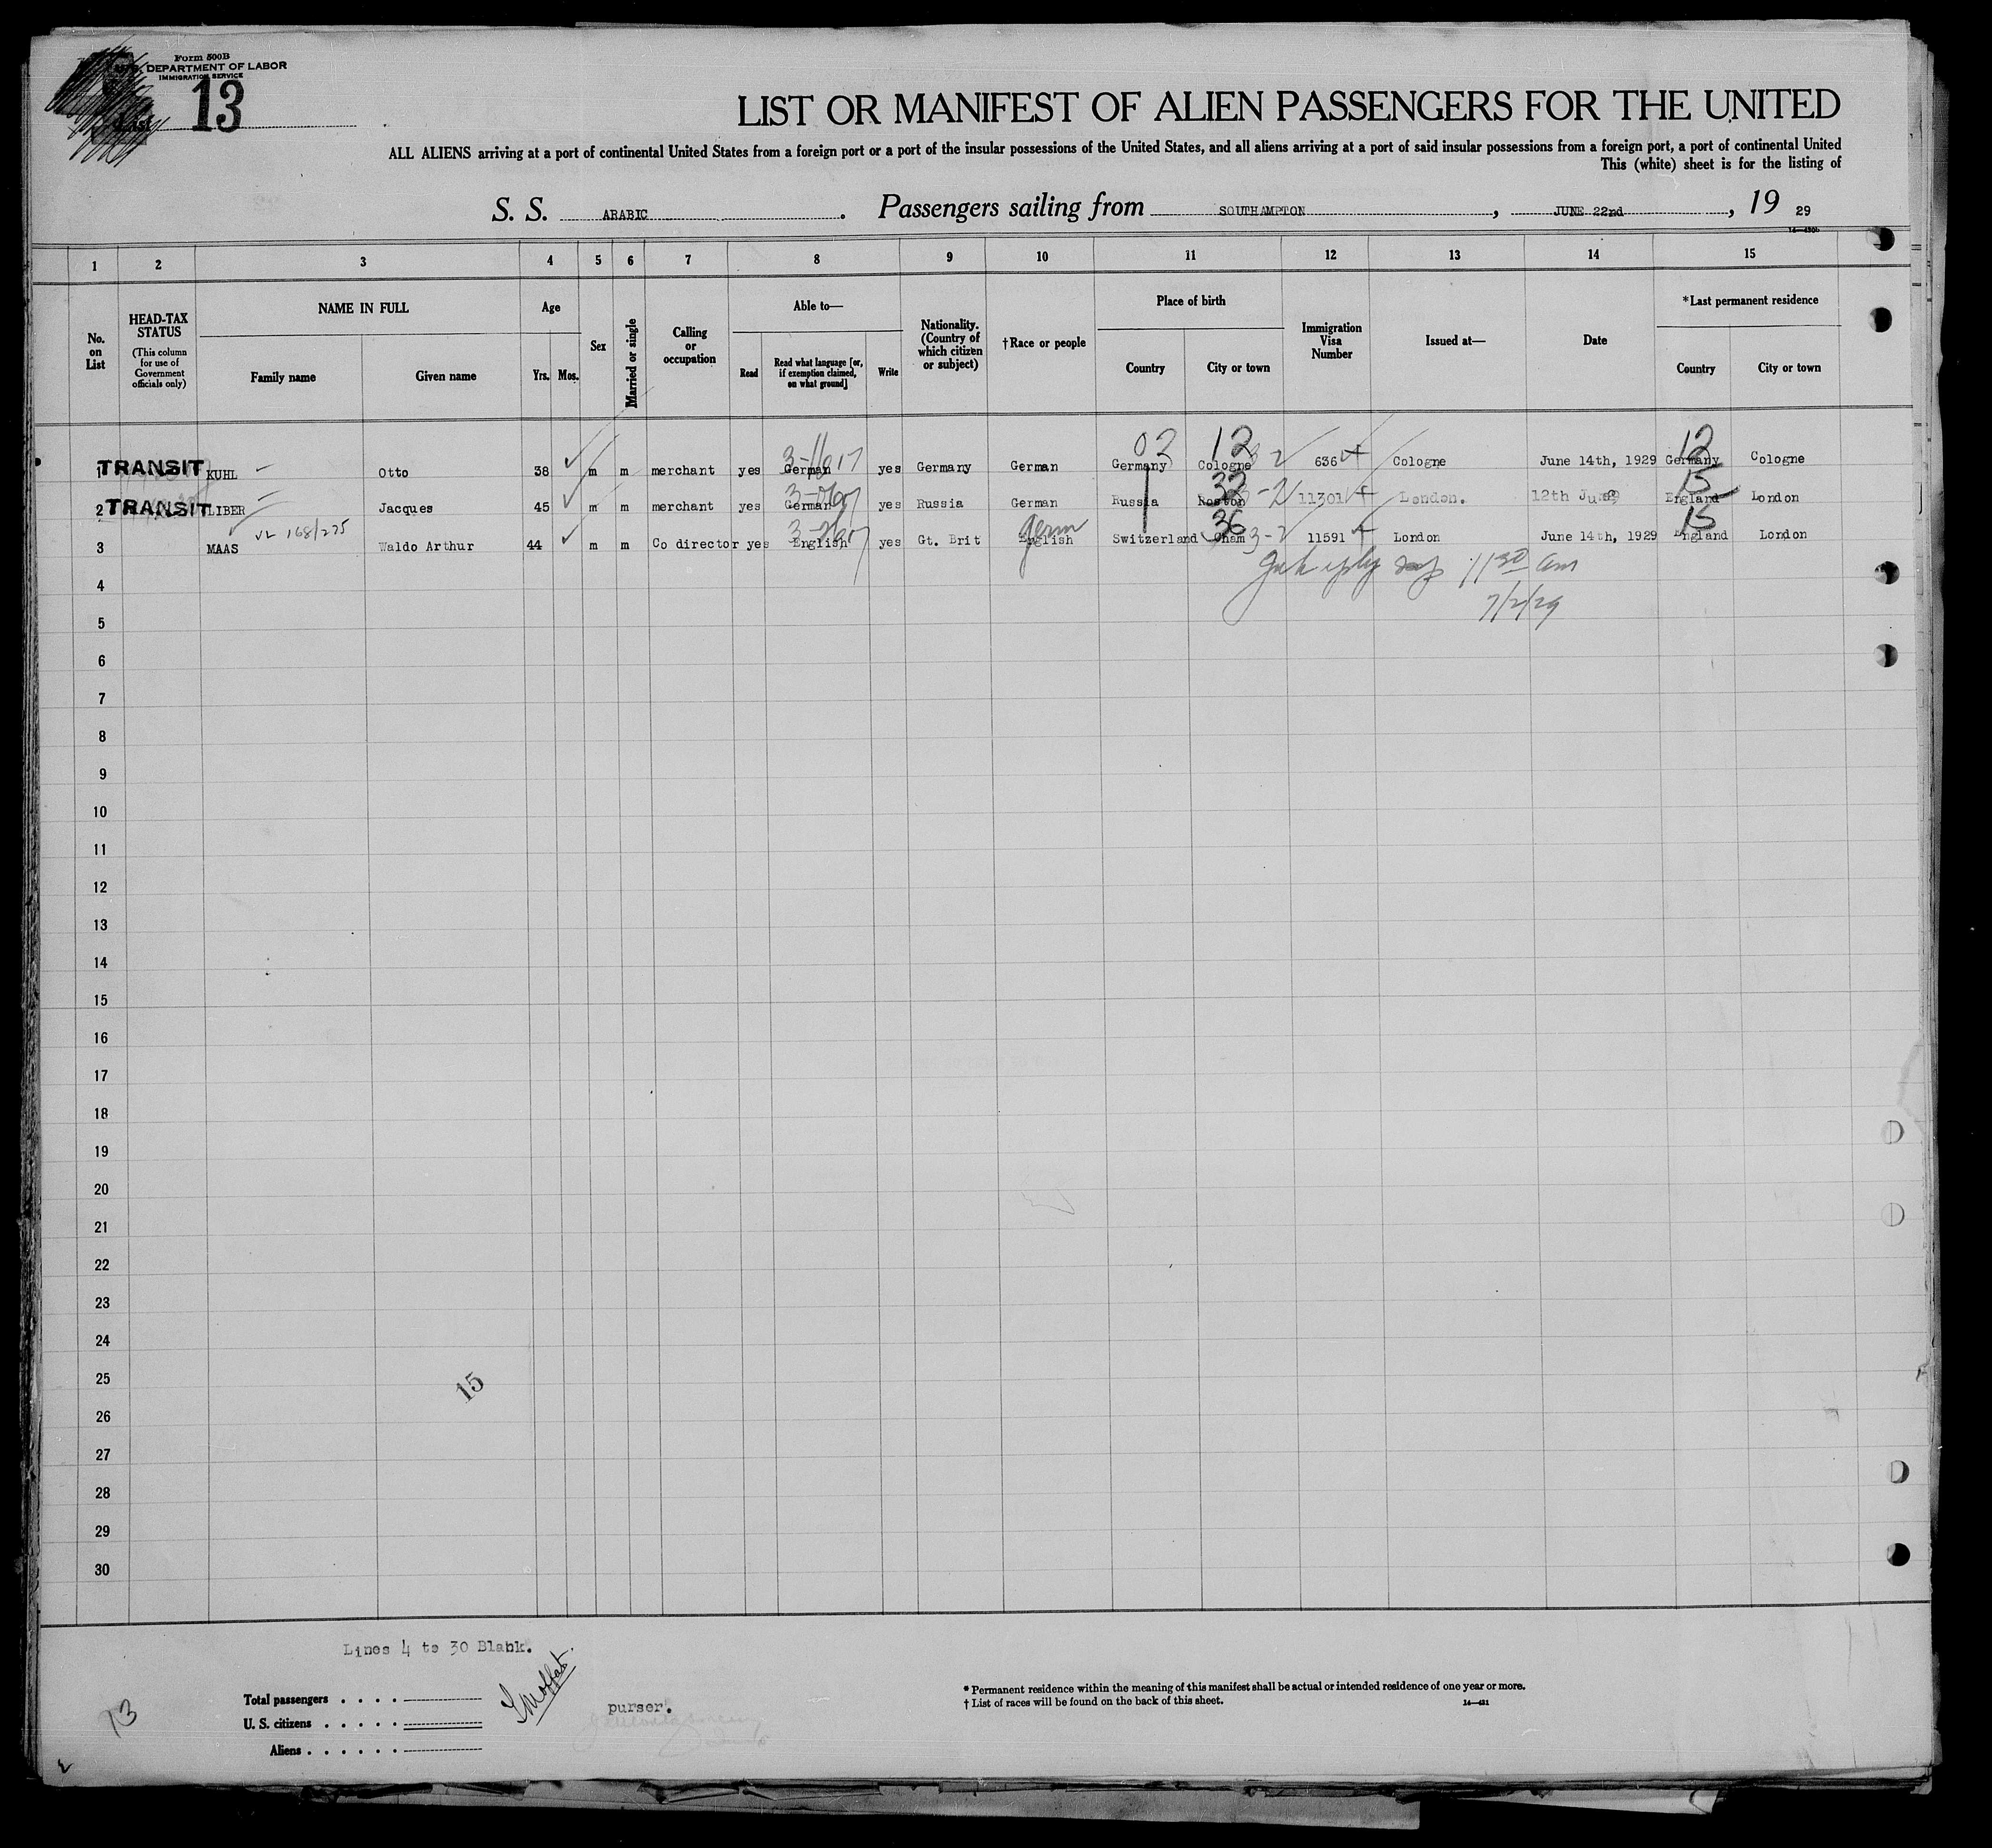 Form 500B
U. S. DEPARTMENT OF LABOR
IMMIGRATION SERVICE
List 13
LIST OR MANIFEST OF ALIEN PASSENGERS FOR THE UNITED
ALL ALIENS arriving at a port of continental United States from a foreign port or a port of the insular possessions of the United States, and all aliens arriving at a port of said insular possessions from a foreign port, a port of continental United
This (white) sheet is for the listing of
S. S. ARABIC. Passengers sailing from SOUTHAMPTON, JUNE 22nd, 19 29
1 2 3 4 5 6 7 8 9 10 11 12 13 14 15
No. on List
HEAD-TAX STATUS (This column for use of Government officials only)
NAME IN FULL
Family name
Given name
Age
Yrs. Mos.
Sex
Married or single
Calling or occupation
Able to—
Read
Read what language [or, if exemption claimed, on what ground]
Write
Nationality. (Country of which citizen or subject)
†Race or people
Place of birth
Country
City or town
Immigration Visa Number
Issued at—
Date
*Last permanent residence
Country
City or town
02 12 12
1 TRANSIT KUHL Otto 38 m m merchant yes German yes Germany German Germany Cologne 636 Cologne June 14th, 1929 Germany Cologne
32 15
2 TRANSIT LIBER Jacques 45 m m merchant yes German yes Russia German Russia Rostov 11301 London. 12th June England London
168/275 36 15
3 MAAS Waldo Arthur 44 m m Co director yes English yes Gt. Brit English Germ Switzerland Cham 3-2 11591 London June 14th, 1929 England London
11 30 am
4
7/2/29
5
6
7
8
9
10
11
12
13
14
15
16
17
18
19
20
21
22
23
24
25
15
26
27
28
29
30
Lines 4 to 30 Blank.
Total passengers
U. S. citizens
Aliens
13
purser.
* Permanent residence within the meaning of this manifest shall be actual or intended residence of one year or more.
† List of races will be found on the back of this sheet. 14—431